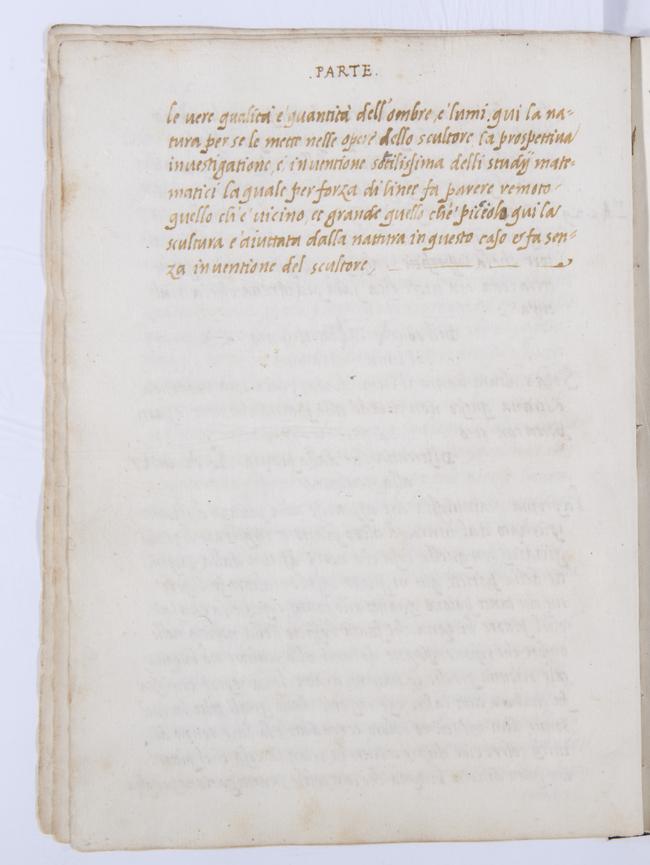 .PARTE.
le vere qualità e' quantità dell'ombre, e' lumi. qui la na=
tura per se le mette nelle opere dello scultore, la prospettiva
investigatione, e' inventione sotilissima delli studij mate=
matici la quale per forza di linee fa parere remoto
quello ch'e' vicino, et grande quello che' picciolo qui la
scultura e' aiuttata dalla nattura in questo caso et fa sen=
za inventione del scultore,